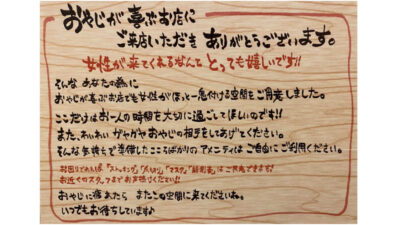 おやじが喜ぶお店に
ご来店いただき ありがとうございます。
女性が来てくれるなんて とっても嬉しいです!!
そんな あなたの為に
おやじが喜ぶお店でも女性がほっと一息付ける空間をご用意しました。
ここだけはお一人の時間を大切に過ごしてほしいのです!!
また、わいわい ガヤガヤ おやじの相手をしてあげてください。
そんな気持ちで準備したこころばかりのアメニティはご自由にご利用ください。
お困りであれば「ストッキング」「マスク」「綿棒」はご用意できます!
お近くのスタッフまでお声掛けください!!
おやじに疲れたら またこの空間に来てくださいね。
いつでもお待ちしています♪